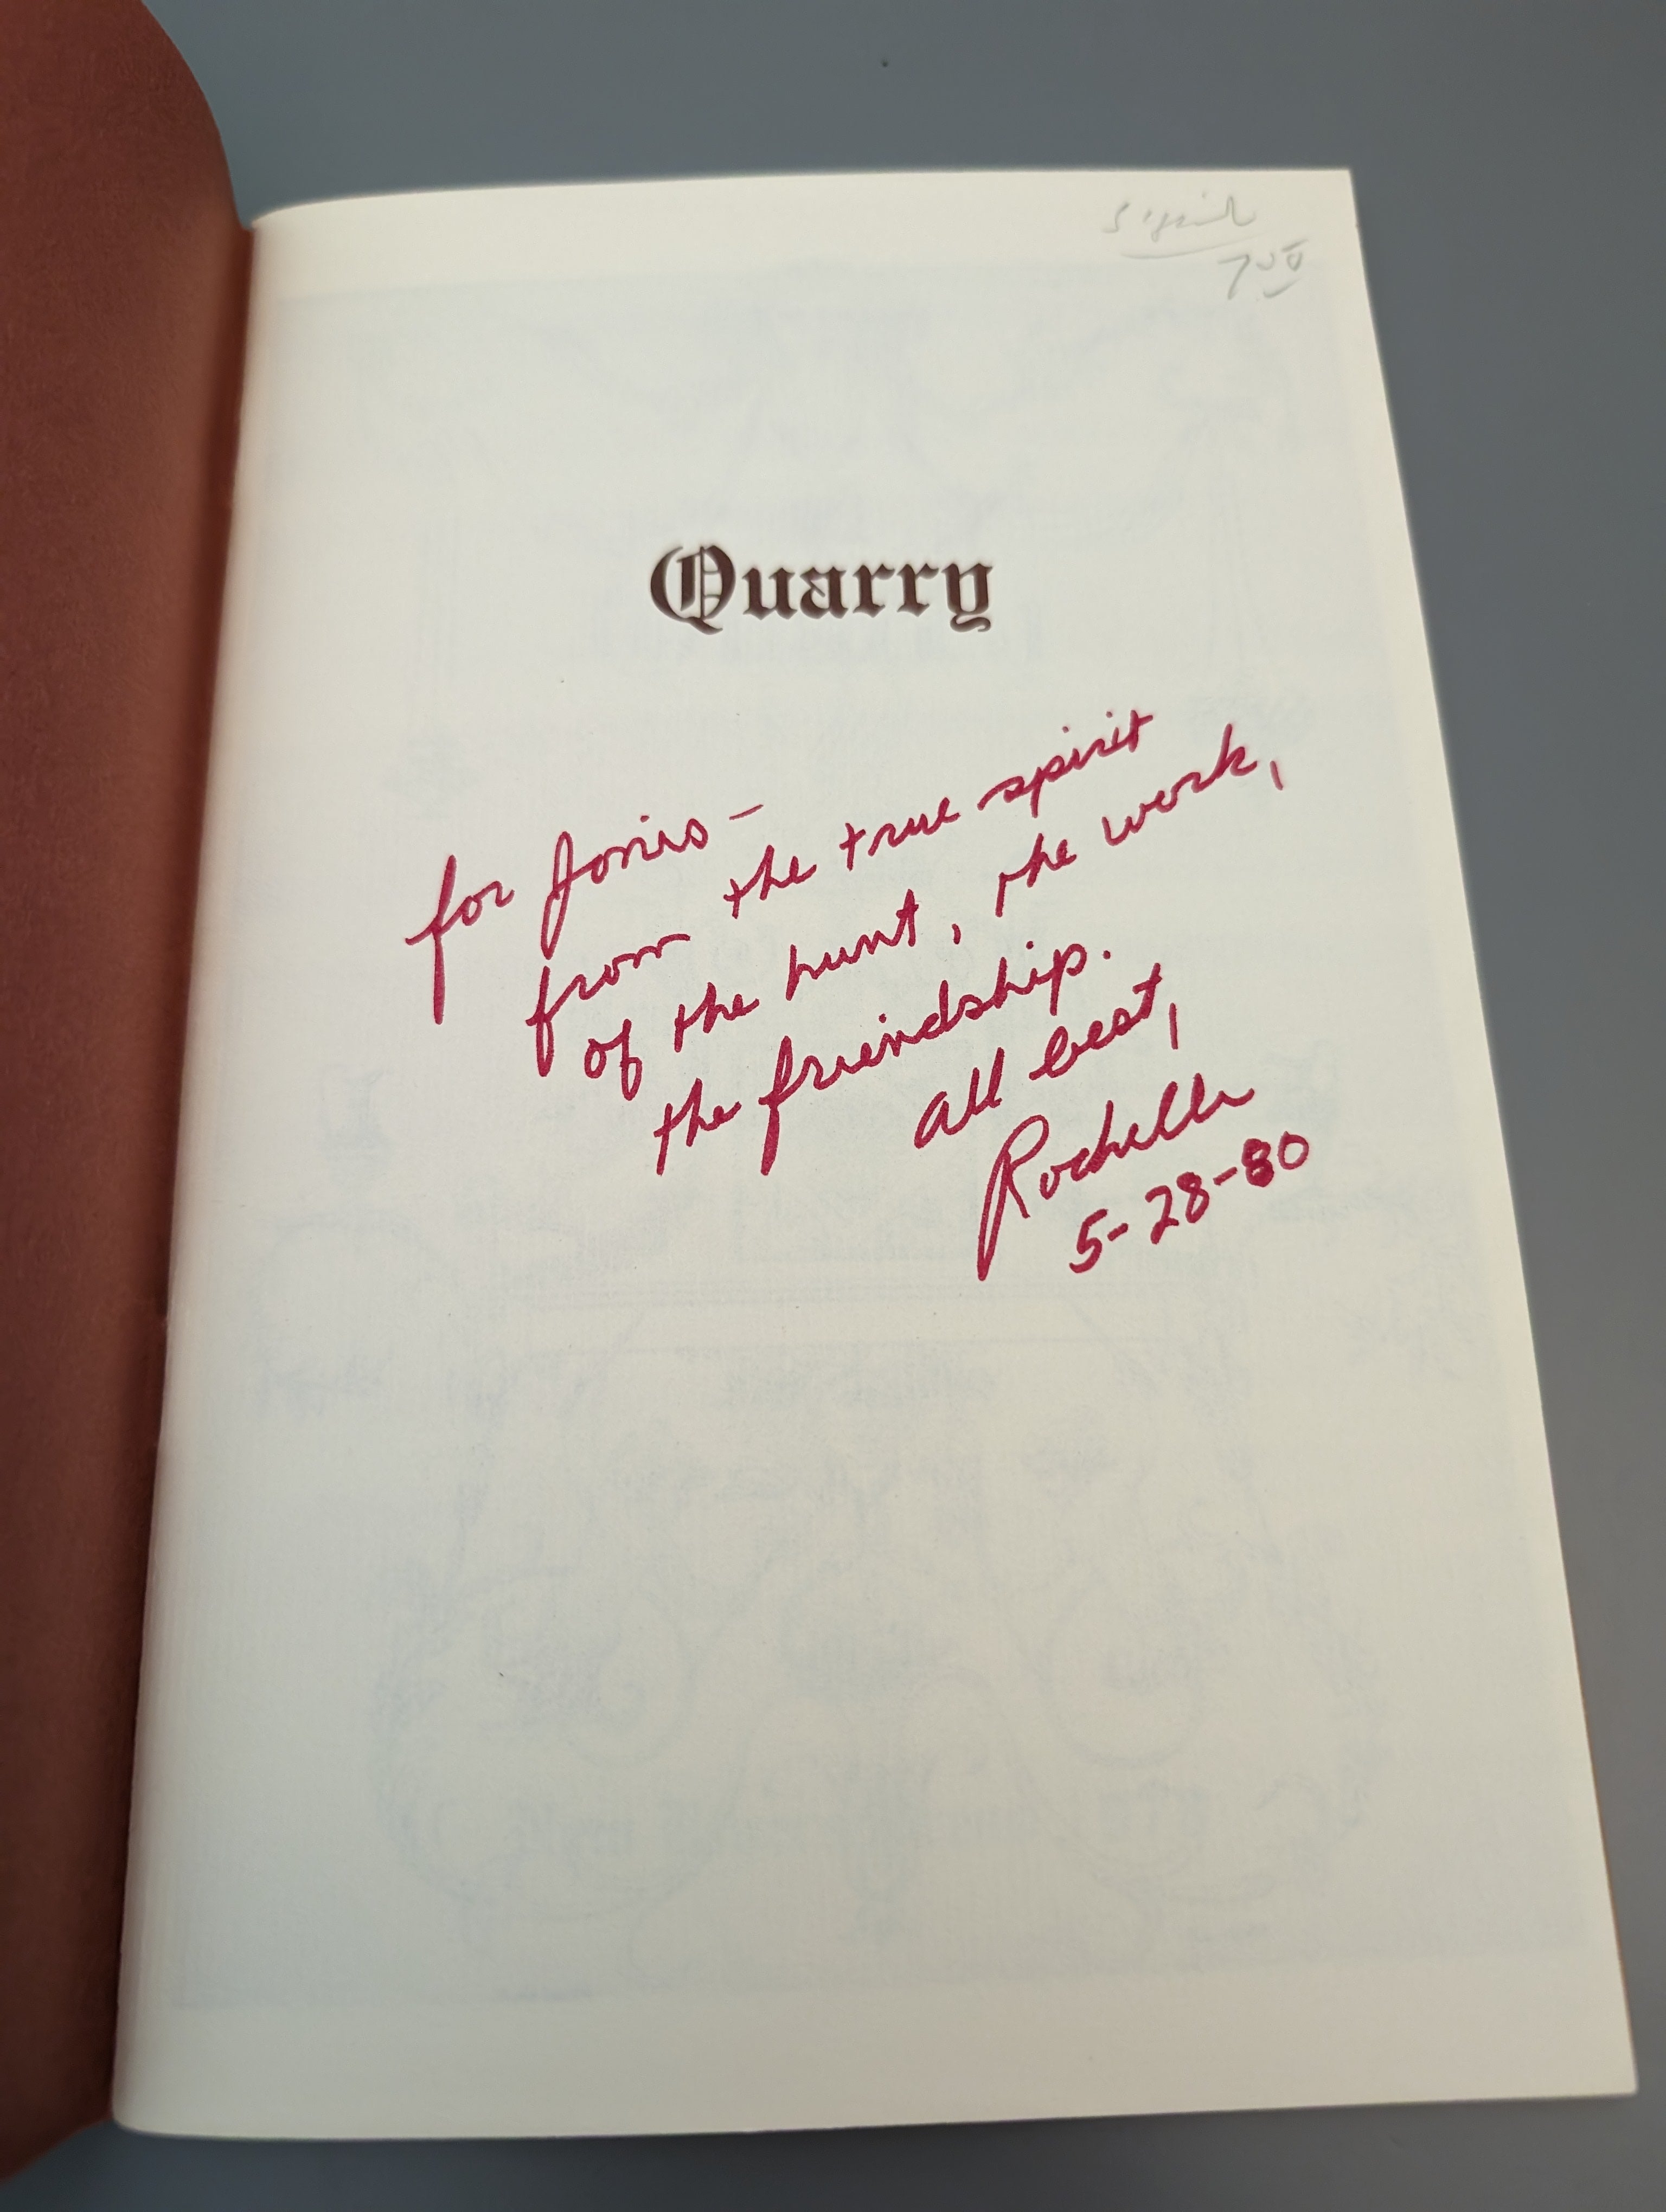 signed
7 50
Quarry
for –
from the true spirit
of the hunt, the work,
the friendship.
all best,
Rochelle
5-28-80